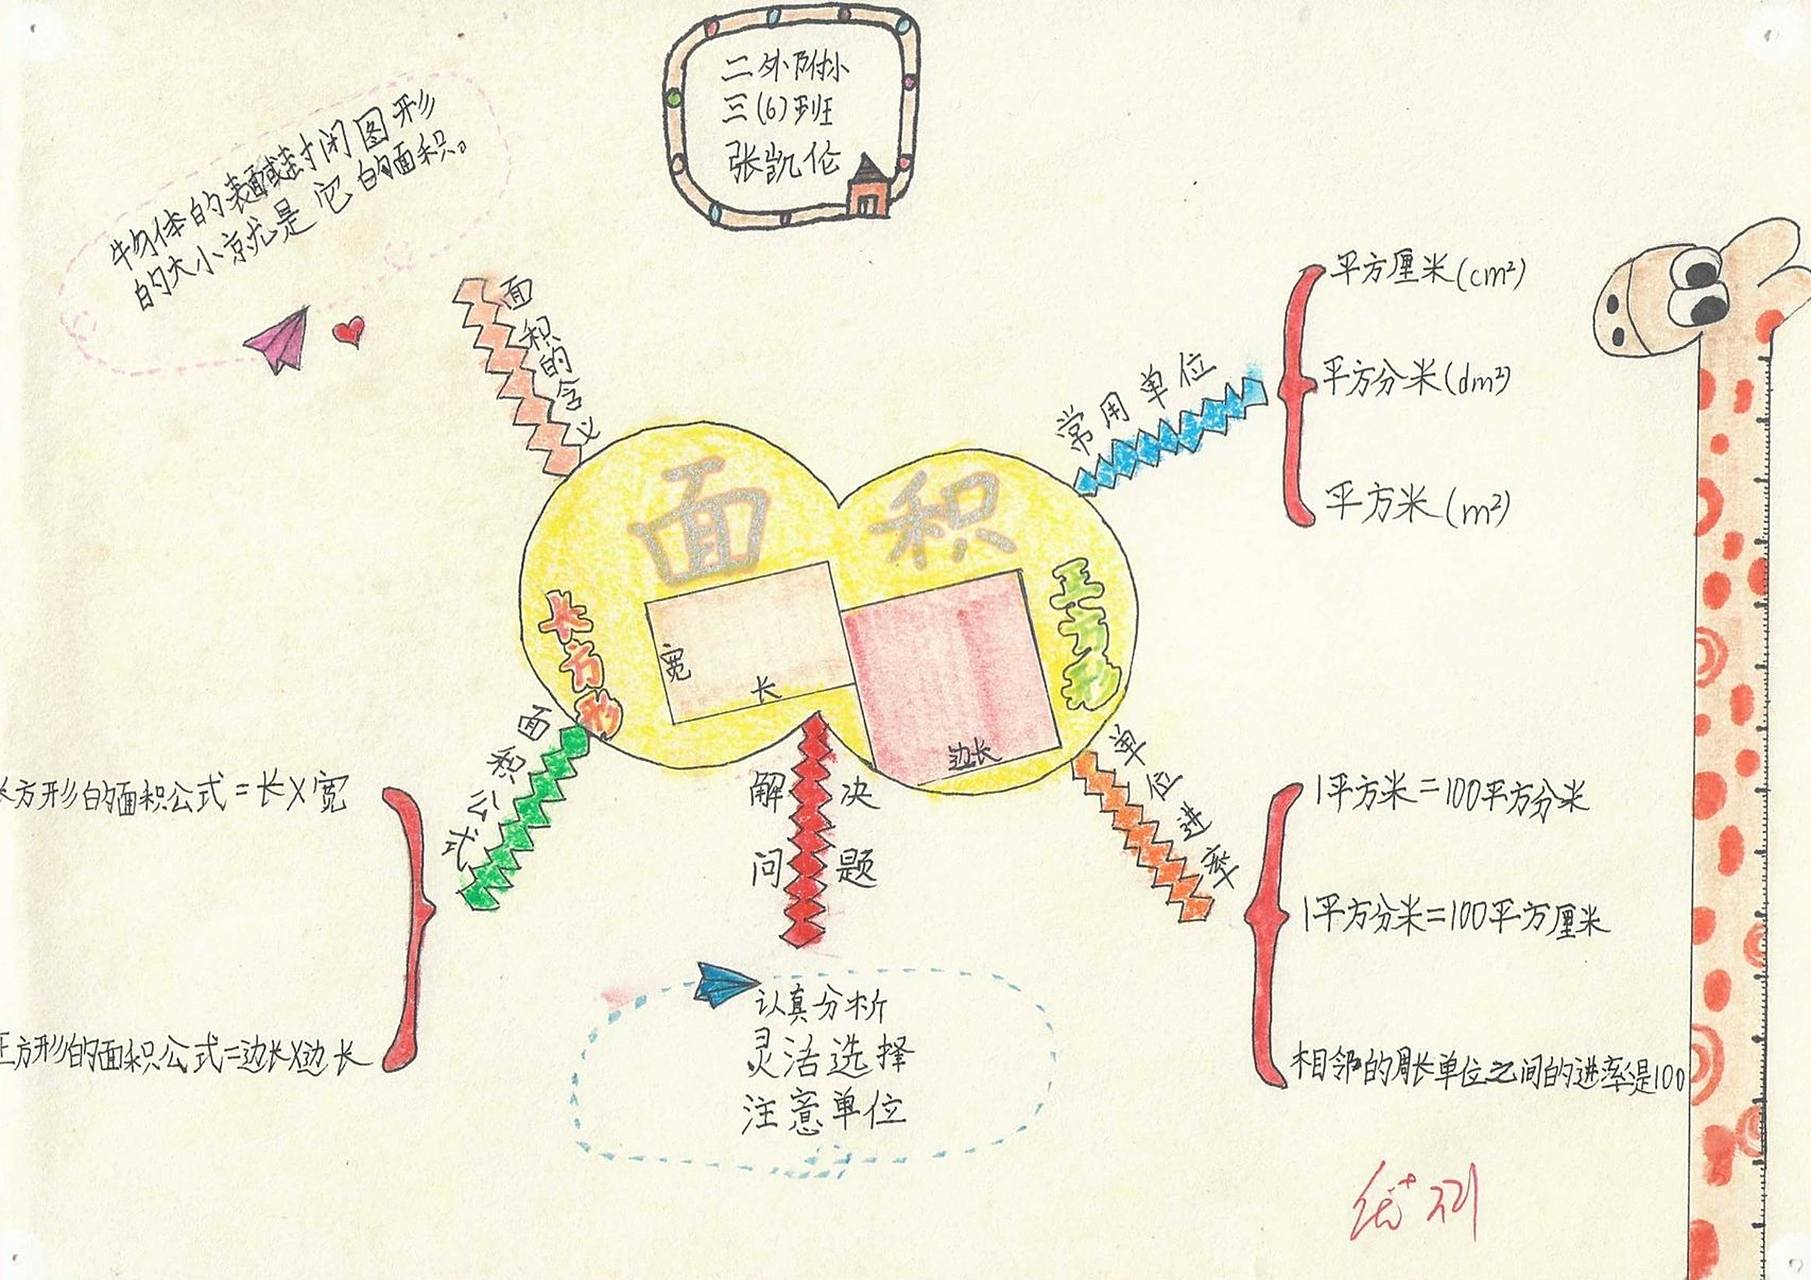 二外附小
三(6)班
张凯伦
物体的表面或封闭图形
的大小就是它的面积。
面积的含义
常用单位
平方厘米(cm²)
平方分米(dm²)
平方米(m²)
面积
长方形
正方形
宽
长
边长
面积公式
长方形的面积公式=长×宽
正方形的面积公式=边长×边长
解决
问题
认真分析
灵活选择
注意单位
单位进率
1平方米=100平方分米
1平方分米=100平方厘米
相邻的周长单位之间的进率是100